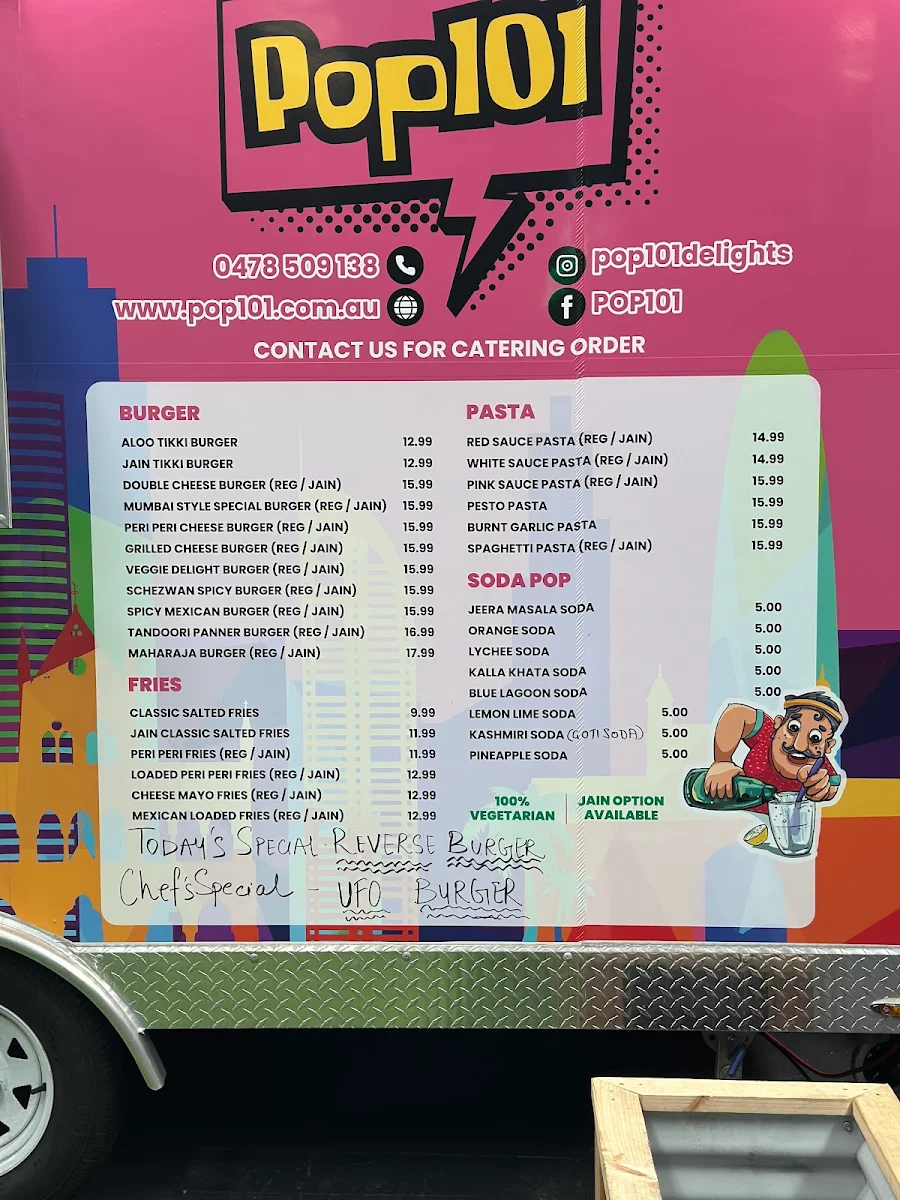 Pop101
0478 509 138
www.pop101.com.au
pop101delights
POP101
CONTACT US FOR CATERING ORDER
BURGER
ALOO TIKKI BURGER 12.99
JAIN TIKKI BURGER 12.99
DOUBLE CHEESE BURGER (REG / JAIN) 15.99
MUMBAI STYLE SPECIAL BURGER (REG / JAIN) 15.99
PERI PERI CHEESE BURGER (REG / JAIN) 15.99
GRILLED CHEESE BURGER (REG / JAIN) 15.99
VEGGIE DELIGHT BURGER (REG / JAIN) 15.99
SCHEZWAN SPICY BURGER (REG / JAIN) 15.99
SPICY MEXICAN BURGER (REG / JAIN) 15.99
TANDOORI PANNER BURGER (REG / JAIN) 16.99
MAHARAJA BURGER (REG / JAIN) 17.99
FRIES
CLASSIC SALTED FRIES 9.99
JAIN CLASSIC SALTED FRIES 11.99
PERI PERI FRIES (REG / JAIN) 11.99
LOADED PERI PERI FRIES (REG / JAIN) 12.99
CHEESE MAYO FRIES (REG / JAIN) 12.99
MEXICAN LOADED FRIES (REG / JAIN) 12.99
PASTA
RED SAUCE PASTA (REG / JAIN) 14.99
WHITE SAUCE PASTA (REG / JAIN) 14.99
PINK SAUCE PASTA (REG / JAIN) 15.99
PESTO PASTA 15.99
BURNT GARLIC PASTA 15.99
SPAGHETTI PASTA (REG / JAIN) 15.99
SODA POP
JEERA MASALA SODA 5.00
ORANGE SODA 5.00
LYCHEE SODA 5.00
KALLA KHATA SODA 5.00
BLUE LAGOON SODA 5.00
LEMON LIME SODA 5.00
KASHMIRI SODA (GOTI SODA) 5.00
PINEAPPLE SODA 5.00
100% VEGETARIAN
JAIN OPTION AVAILABLE
TODAY'S SPECIAL REVERSE BURGER
Chef's Special - UFO BURGER